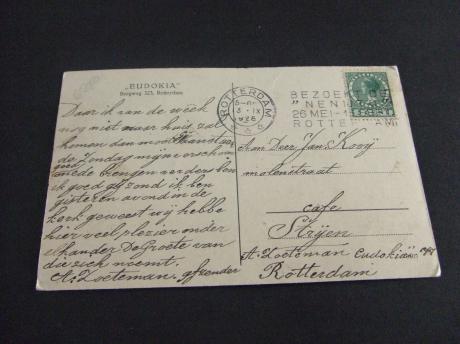 „EUDOKIA"
Bergweg 325, Rotterdam
Daar ik aan de week
nog niet naar huis zal
komen dan moet
de Zondag mijne
brengen verders ben
ik goed gezond ik ben
gisteren avond in de
kerk geweest wij hebbe
hier veel plezier onder
elkander De Groete van
die zich noemt.
A. Zoeteman. afzender
ROTTERDAM
1928
BEZOEKT DE
"NENI
26 MEI-
ROTTE
Aan Deer Jans Kooij
molenstraat
cafe
Strijen
A. Zoeteman Eudokia
Rotterdam